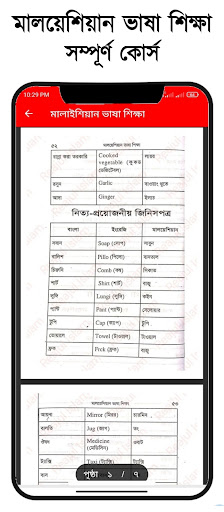 মালয়েশিয়ান ভাষা শিক্ষা
সম্পূর্ণ কোর্স
10:29 PM
মালাইশিয়ান ভাষা শিক্ষা
৫২ মালয়েশিয়ান ভাষা শিক্ষা
রান্না করা তরকারি Cooked vegetable (কুকড ভেজিটেবল) লায়ক
রসুন Garlic
আদা Ginger
নিত্য-প্রয়োজনীয় জিনিসপত্র
বাংলা ইংরেজি মালয়েশিয়ান
সাবান Soap (সোপ) সাবুন
বালিশ Pillo (পিলো) বানতাল
চিরুনি Comb (কম্ব) সিকাত
শার্ট Shirt (শার্ট) বাজু
লুঙ্গি Lungi (লুঙ্গি) কাইন
প্যান্ট Pant (প্যান্ট) সেলোয়ার
টুপি Cap (ক্যাপ) টুপি
তোয়ালে Towel (টাওয়েল) টাওয়াল
ফ্রক Frck (ফ্রক) বাজু
মালয়েশিয়ান ভাষা শিক্ষা ৫৩
আয়না Mirror (মিরর) চারমিন
বালতি Jug (জাগ)
ঔষধ Medicine (মেডিসিন) ওবাট
ট্যাক্সি Taxi (ট্যাক্সি)
পৃষ্ঠা ১ / ৭